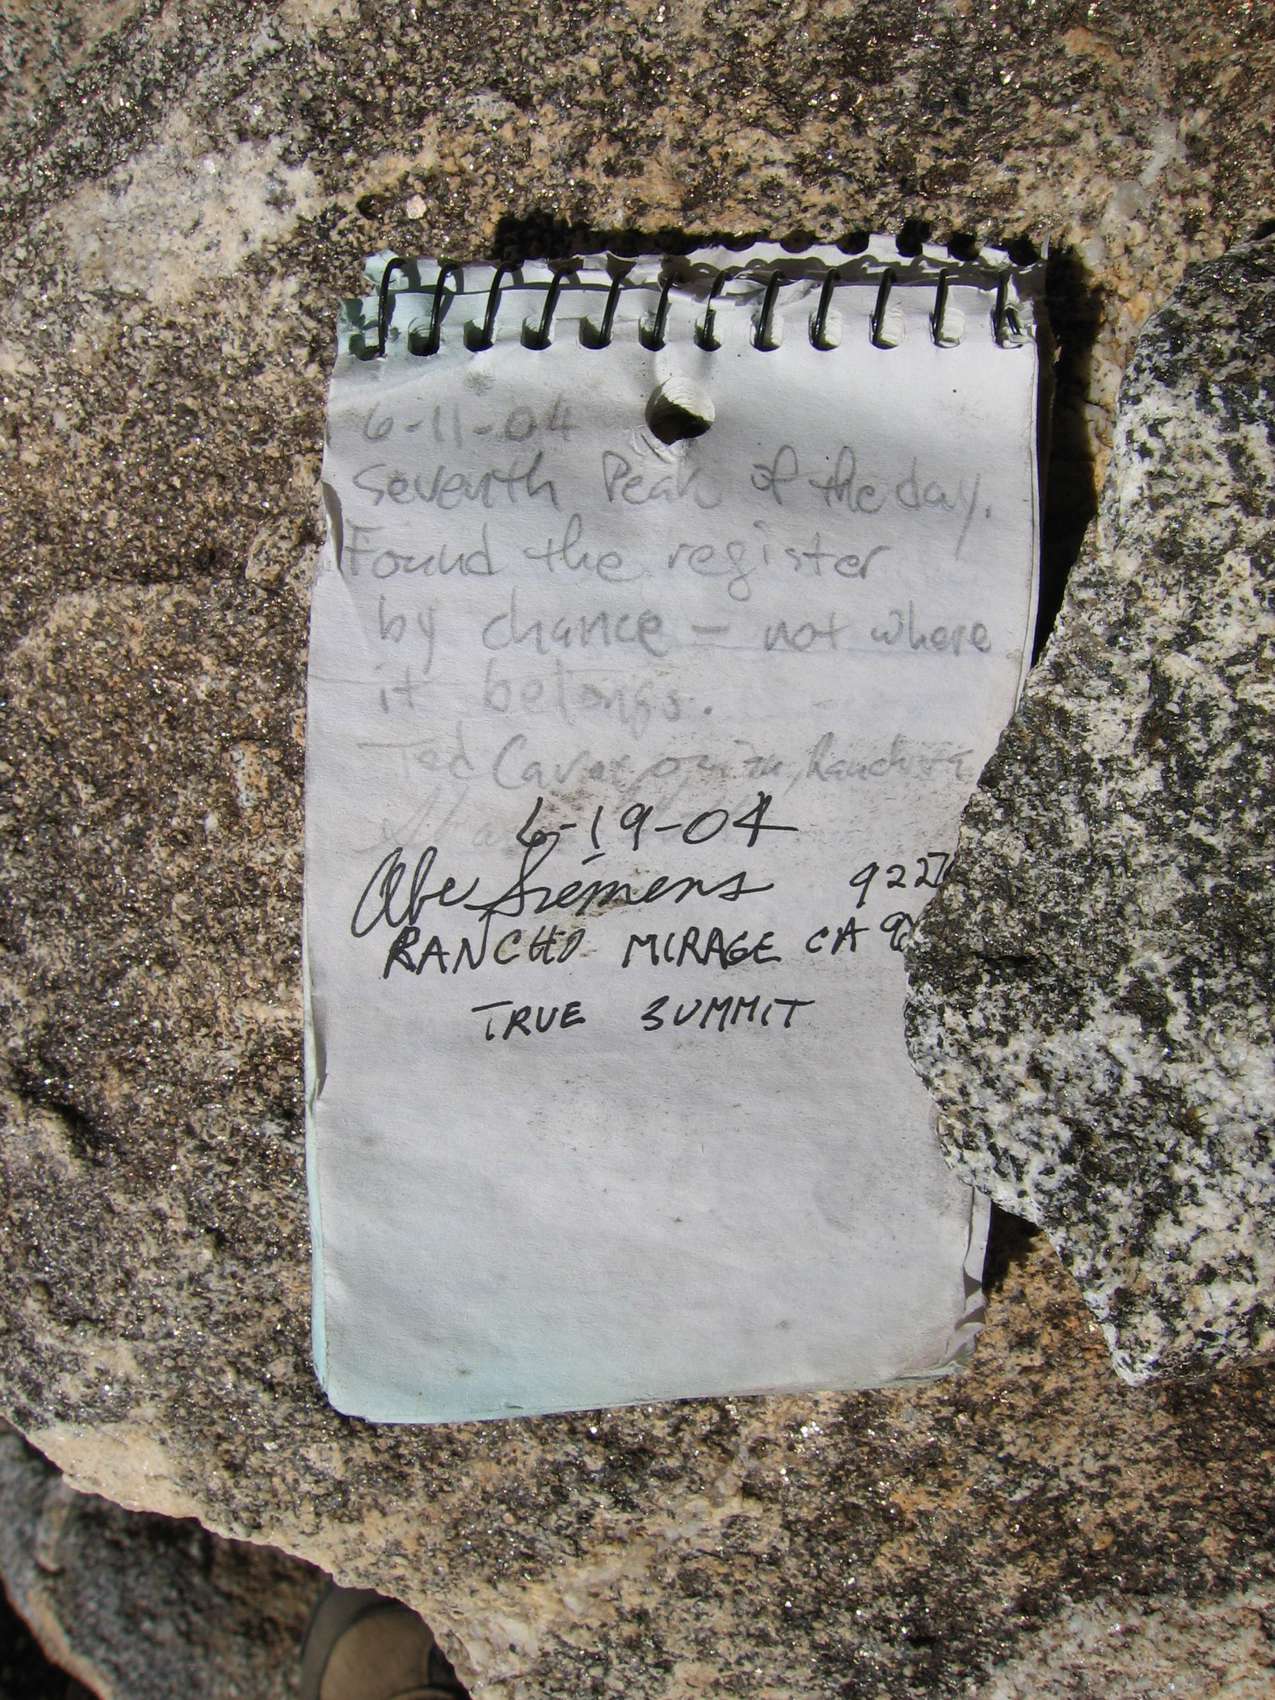 6-11-04
Seventh Peak of the day.
Found the register
by chance – not where
it belongs.
Ted
6-19-04
Abe Siemens 9227
RANCHO MIRAGE CA 9
TRUE SUMMIT